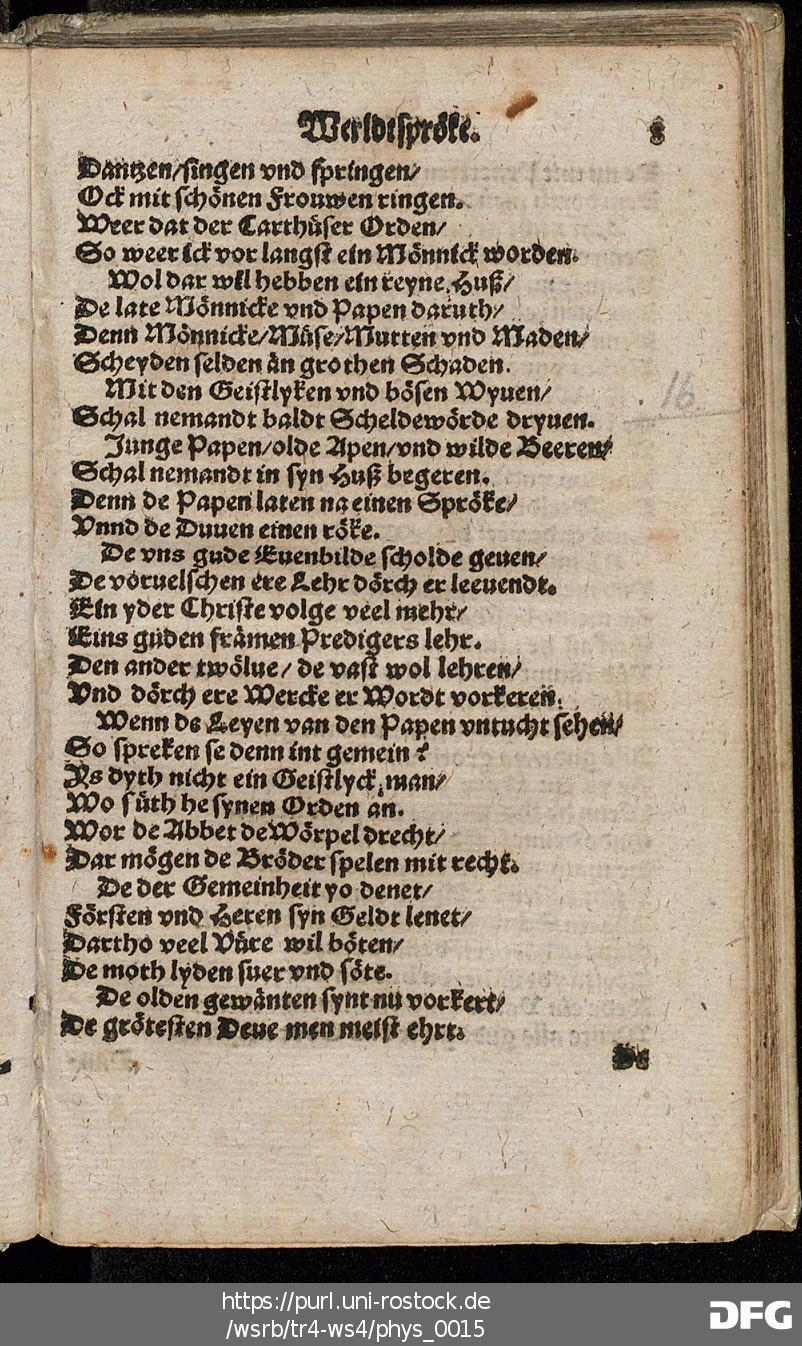 Werldtspröke. 8
Dantzen/singen vnd springen/
Ock mit schönen Frouwen ringen.
Weer dat der Carthüser Orden/
So weer ick vor langst ein Mönnick worden.
Wol dar wil hebben ein reyne Huß/
De late Mönnicke vnd Papen daruth/
Denn Mönnicke/Müse/Mutten vnd Maden/
Scheyden selden än grothen Schaden.
Mit den Geistlyken vnd bösen Wyuen/
Schal nemandt baldt Scheldewörde dryuen.
16
Junge Papen/olde Apen/vnd wilde Beeren/
Schal nemandt in syn Huß begeren.
Denn de Papen laten na einen Spröke/
Vnnd de Duuen einen röke.
De vns gude Euenbilde scholde geuen/
De vöruelschen ere Lehr dörch er leeuendt.
Ein yder Christe volge veel mehr/
Eins guden främen Predigers lehr.
Den ander twölue/ de vast wol lehren/
Vnd dörch ere Wercke er Wordt vorkeren.
Wenn de Leyen van den Papen vntucht sehen/
So spreken se denn int gemein?
Ys dyth nicht ein Geistlyck man/
Wo süth he synen Orden an.
Wor de Abbet de Wörpel drecht/
Dar mögen de Bröder spelen mit recht.
De der Gemeinheit yo denet/
Försten vnd Heren syn Geldt lenet/
Dartho veel Vüre wil böten/
De moth lyden suer vnd söte.
De olden gewänten synt nu vorkert/
De grötesten Deue men meist ehrt.
De
https://purl.uni-rostock.de
/wsrb/tr4-ws4/phys_0015
DFG